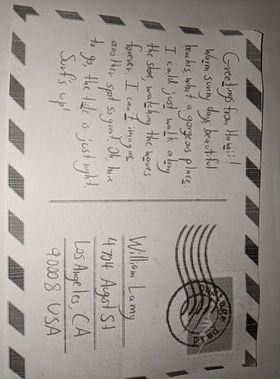 Greetings from Hawaii!
Warm sunny days, beautiful
beaches, what a gorgeous place.
I could just walk along
the shore, watching the waves
forever. I can't imagine
another spot so great. Oh, have
to go, the tide is just right.
Surf's up!
postage paid
William Lamy
4704 August St
Los Angeles, CA
90008 USA